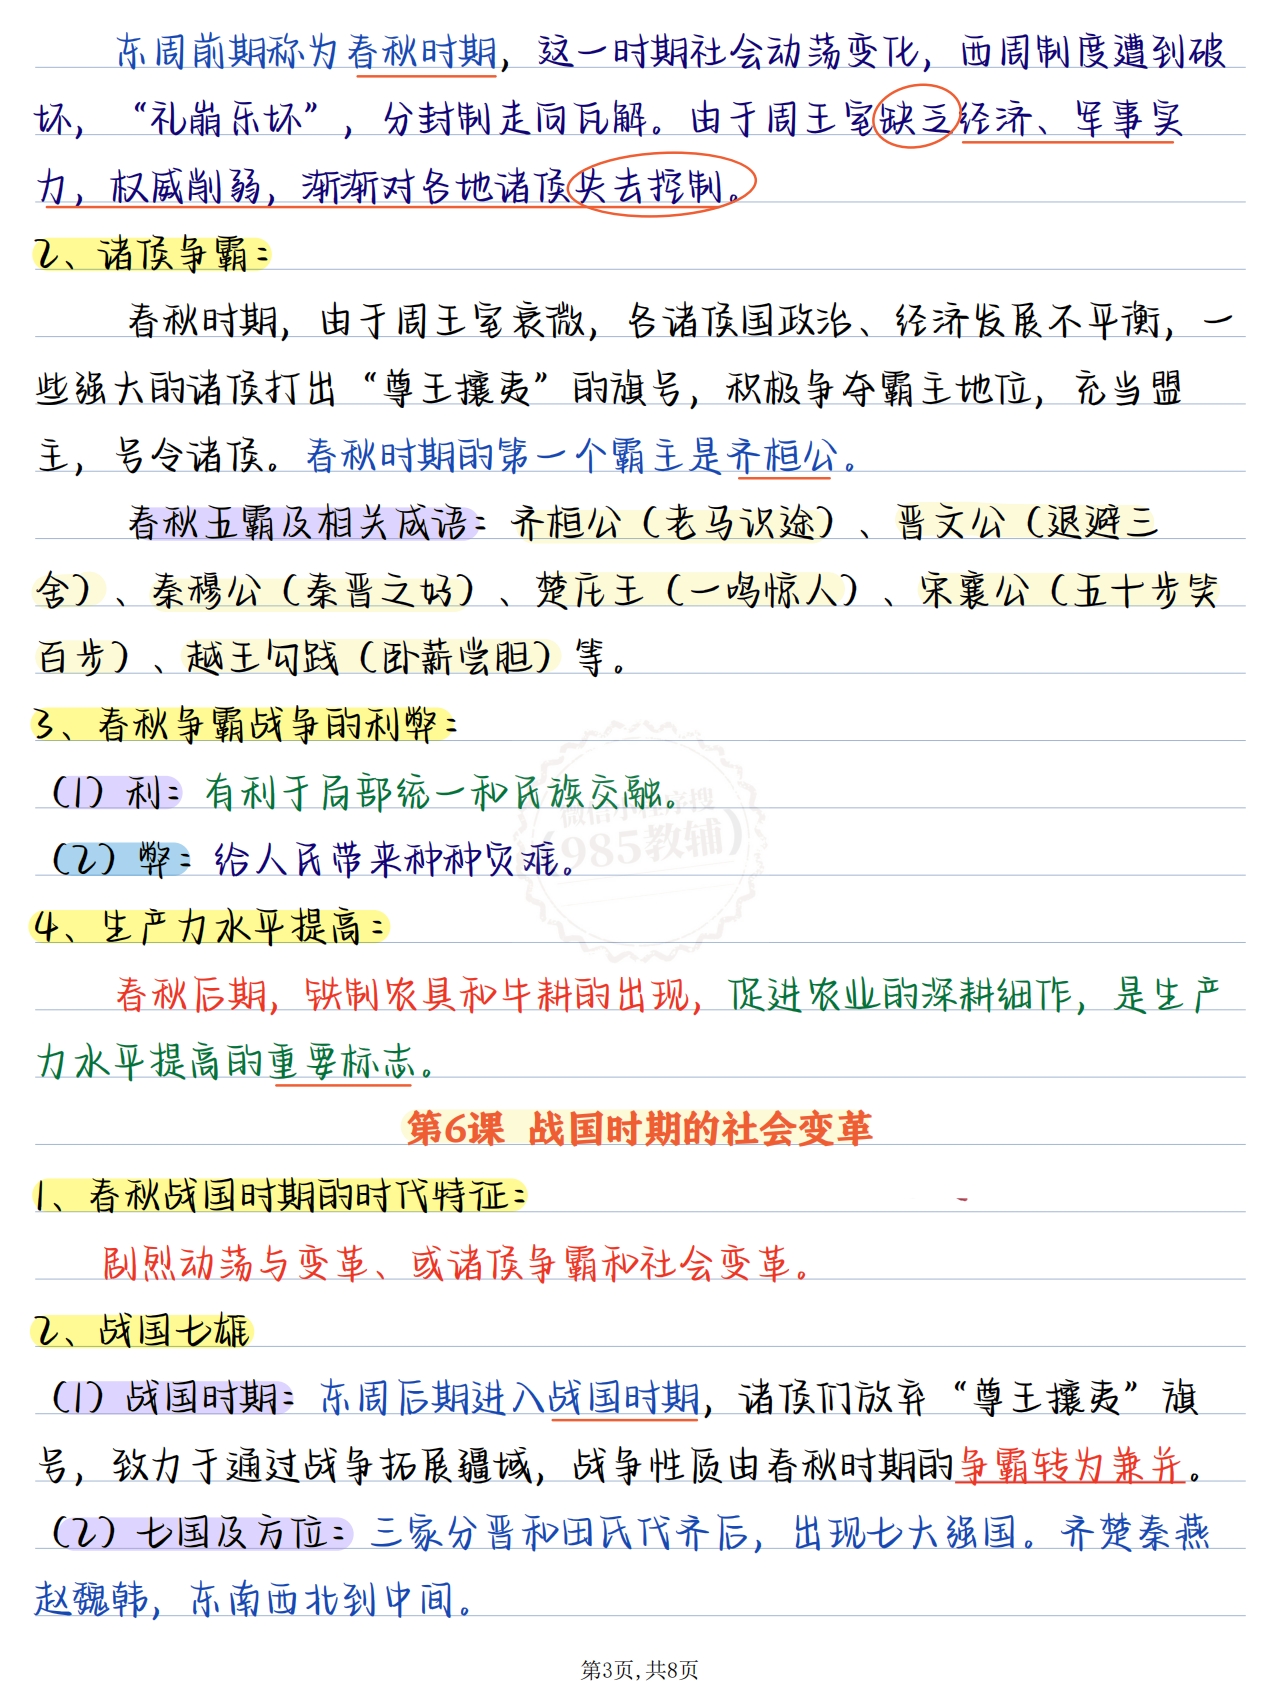 东周前期称为春秋时期，这一时期社会动荡变化，西周制度遭到破
坏，“礼崩乐坏”，分封制走向瓦解。由于周王室缺乏经济、军事实
力，权威削弱，渐渐对各地诸侯失去控制。
2、诸侯争霸：
春秋时期，由于周王室衰微，各诸侯国政治、经济发展不平衡，一
些强大的诸侯打出“尊王攘夷”的旗号，积极争夺霸主地位，充当盟
主，号令诸侯。春秋时期的第一个霸主是齐桓公。
春秋五霸及相关成语：齐桓公（老马识途）、晋文公（退避三
舍）、秦穆公（秦晋之好）、楚庄王（一鸣惊人）、宋襄公（五十步笑
百步）、越王勾践（卧薪尝胆）等。
3、春秋争霸战争的利弊：
（1）利：有利于局部统一和民族交融。
微信小程序搜
（2）弊：给人民带来种种灾难。
（985教辅）
4、生产力水平提高：
春秋后期，铁制农具和牛耕的出现，促进农业的深耕细作，是生产
力水平提高的重要标志。
第6课 战国时期的社会变革
1、春秋战国时期的时代特征：
剧烈动荡与变革、或诸侯争霸和社会变革。
2、战国七雄
（1）战国时期：东周后期进入战国时期，诸侯们放弃“尊王攘夷”旗
号，致力于通过战争拓展疆域，战争性质由春秋时期的争霸转为兼并。
（2）七国及方位：三家分晋和田氏代齐后，出现七大强国。齐楚秦燕
赵魏韩，东南西北到中间。
第3页，共8页